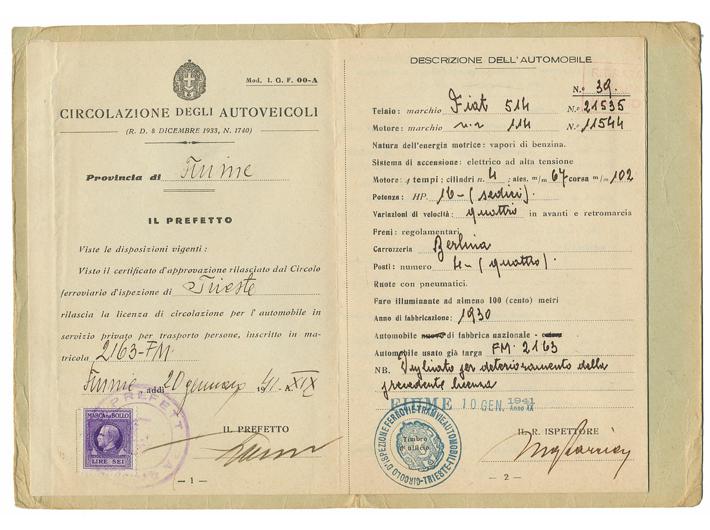 Mod. I. G. F. 00-A
CIRCOLAZIONE DEGLI AUTOVEICOLI
(R. D. 8 DICEMBRE 1933, N. 1740)
Provincia di Fiume
IL PREFETTO
Viste le disposizioni vigenti :
Visto il certificato d'approvazione rilasciato dal Circolo
ferroviario d'ispezione di Trieste
rilascia la licenza di circolazione per l'automobile in
servizio privato per trasporto persone, inscritto in ma-
tricola 2163-FM.
Fiume, addì 20 gennaio 1941-A. XIX
PREFETTURA
MARCA DA BOLLO
LIRE SEI
IL PREFETTO
— 1 —
DESCRIZIONE DELL'AUTOMOBILE
N.º 39.
Telaio: marchio Fiat 514 N.º 21535
Motore: marchio 114 N.º 11544
Natura dell'energia motrice: vapori di benzina.
Sistema di accensione: elettrico ad alta tensione
Motore: 4 tempi; cilindri n. 4; ales. m/m 67 corsa m/m 102
Potenza: HP 16-(sedici).
Variazioni di velocità: quattro in avanti e retromarcia
Freni: regolamentari
Carrozzeria Berlina
Posti: numero 4-(quattro).
Ruote con pneumatici.
Faro illuminante ad almeno 100 (cento) metri
Anno di fabbricazione: 1930
Automobile di fabbrica nazionale -
Automobile usato già targa FM. 2163
NB. per deterioramento della
precedente licenza
FIUME 10 GEN. 1941
Anno XIX
CIRCOLO D'ISPEZIONE FERROVIE TRAMVIE AUTOMOBILI-TRIESTE
Timbro
d'ufficio
IL R. ISPETTORE
— 2 —